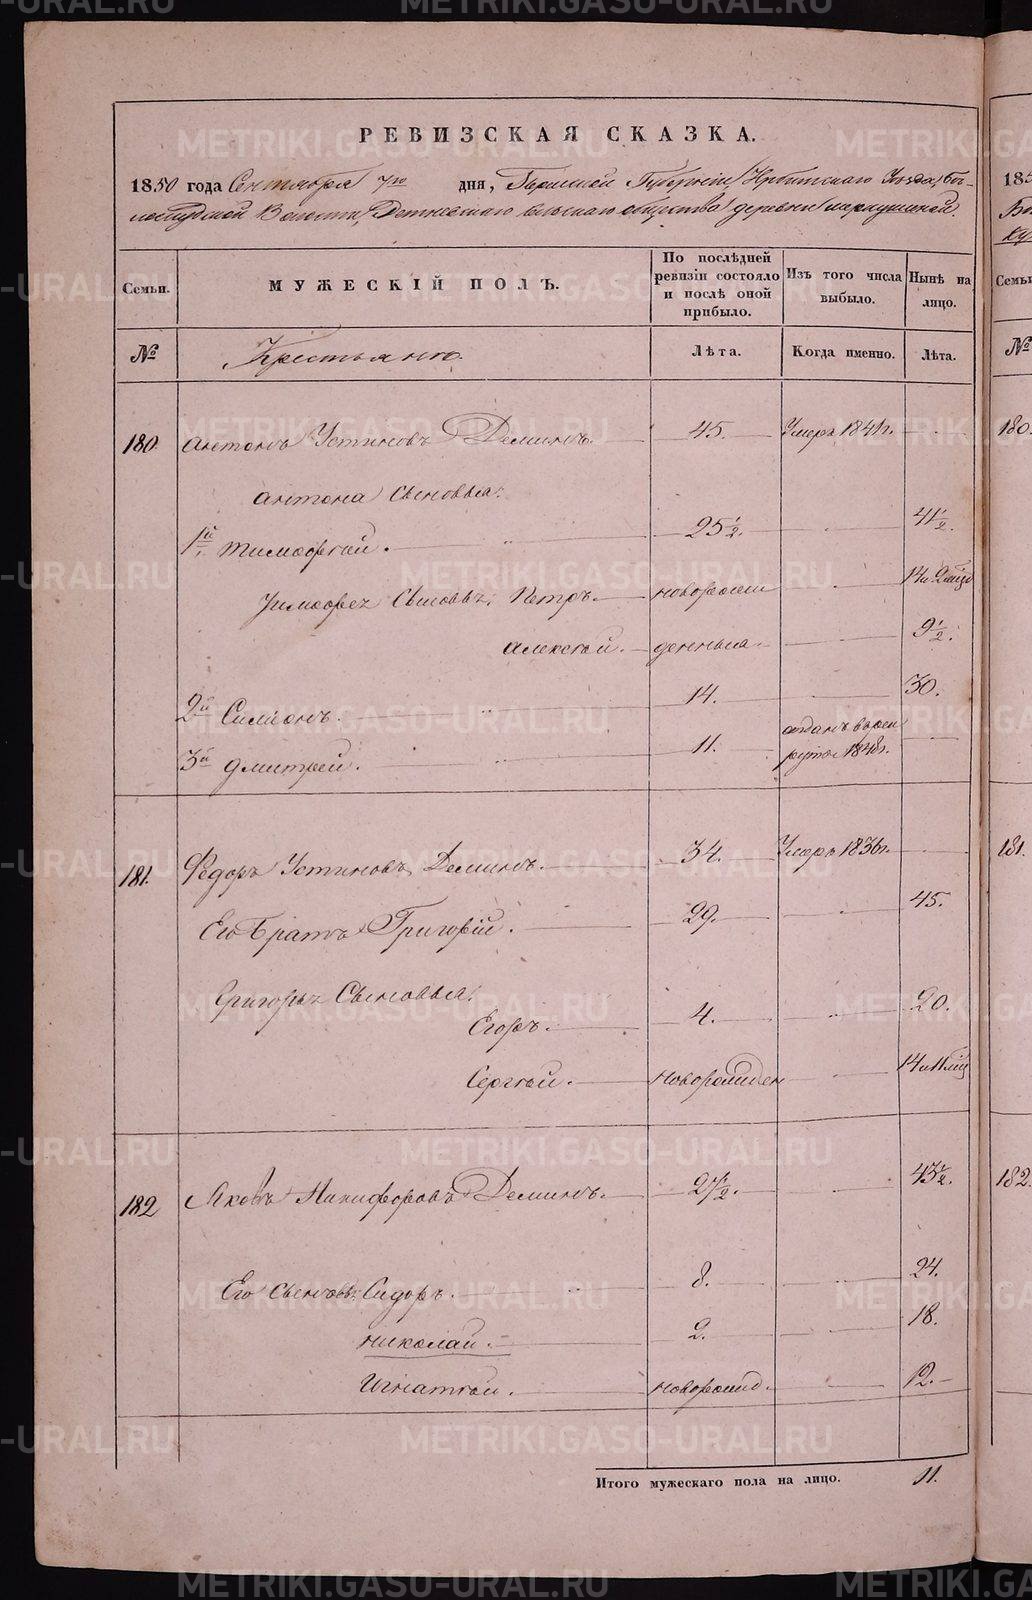 РЕВИЗСКАЯ СКАЗКА.
1850 года Сентября дня, Пермской Губернии Ирбитскаго Уезда, Бе-
лослудской Волости, сельскаго общества деревни
Семьи. МУЖЕСКІЙ ПОЛЪ. По послѣдней ревизіи состояло и послѣ оной прибыло. Изъ того числа выбыло. Нынѣ на лицо.
№ Крестьяне. Лѣта. Когда именно. Лѣта.
180. Антонъ Устиновъ Деминъ. 45. Умеръ 1841 г.
Антона Сыновья:
1й Тимофей. 25½. 41½.
Тимофея Сыновья: Петръ. новорож 14 и 2 мѣся
Алексѣй. денныя 9½.
2й Симионъ. 14. 30.
3й Дмитрей. 11. отданъ в рек
руты 1848 г.
181. Федоръ Устиновъ Деминъ. 34. Умеръ 1836 г.
Его Братъ Григорій. 29. 45.
Григорья Сыновья:
Егоръ. 4. 20.
Сергѣй. новорожден 14 и 11 мѣ
182 Яковъ Никифоровъ Деминъ. 27½. 43½.
Его Сыновья: Сидоръ. 8. 24.
Николай. 2. 18.
Игнатей. новорожд. 12.
Итого мужескаго пола на лицо. 11.
185
№
Семьи
180.
181.
182.
METRIKI.GASO-URAL.RU